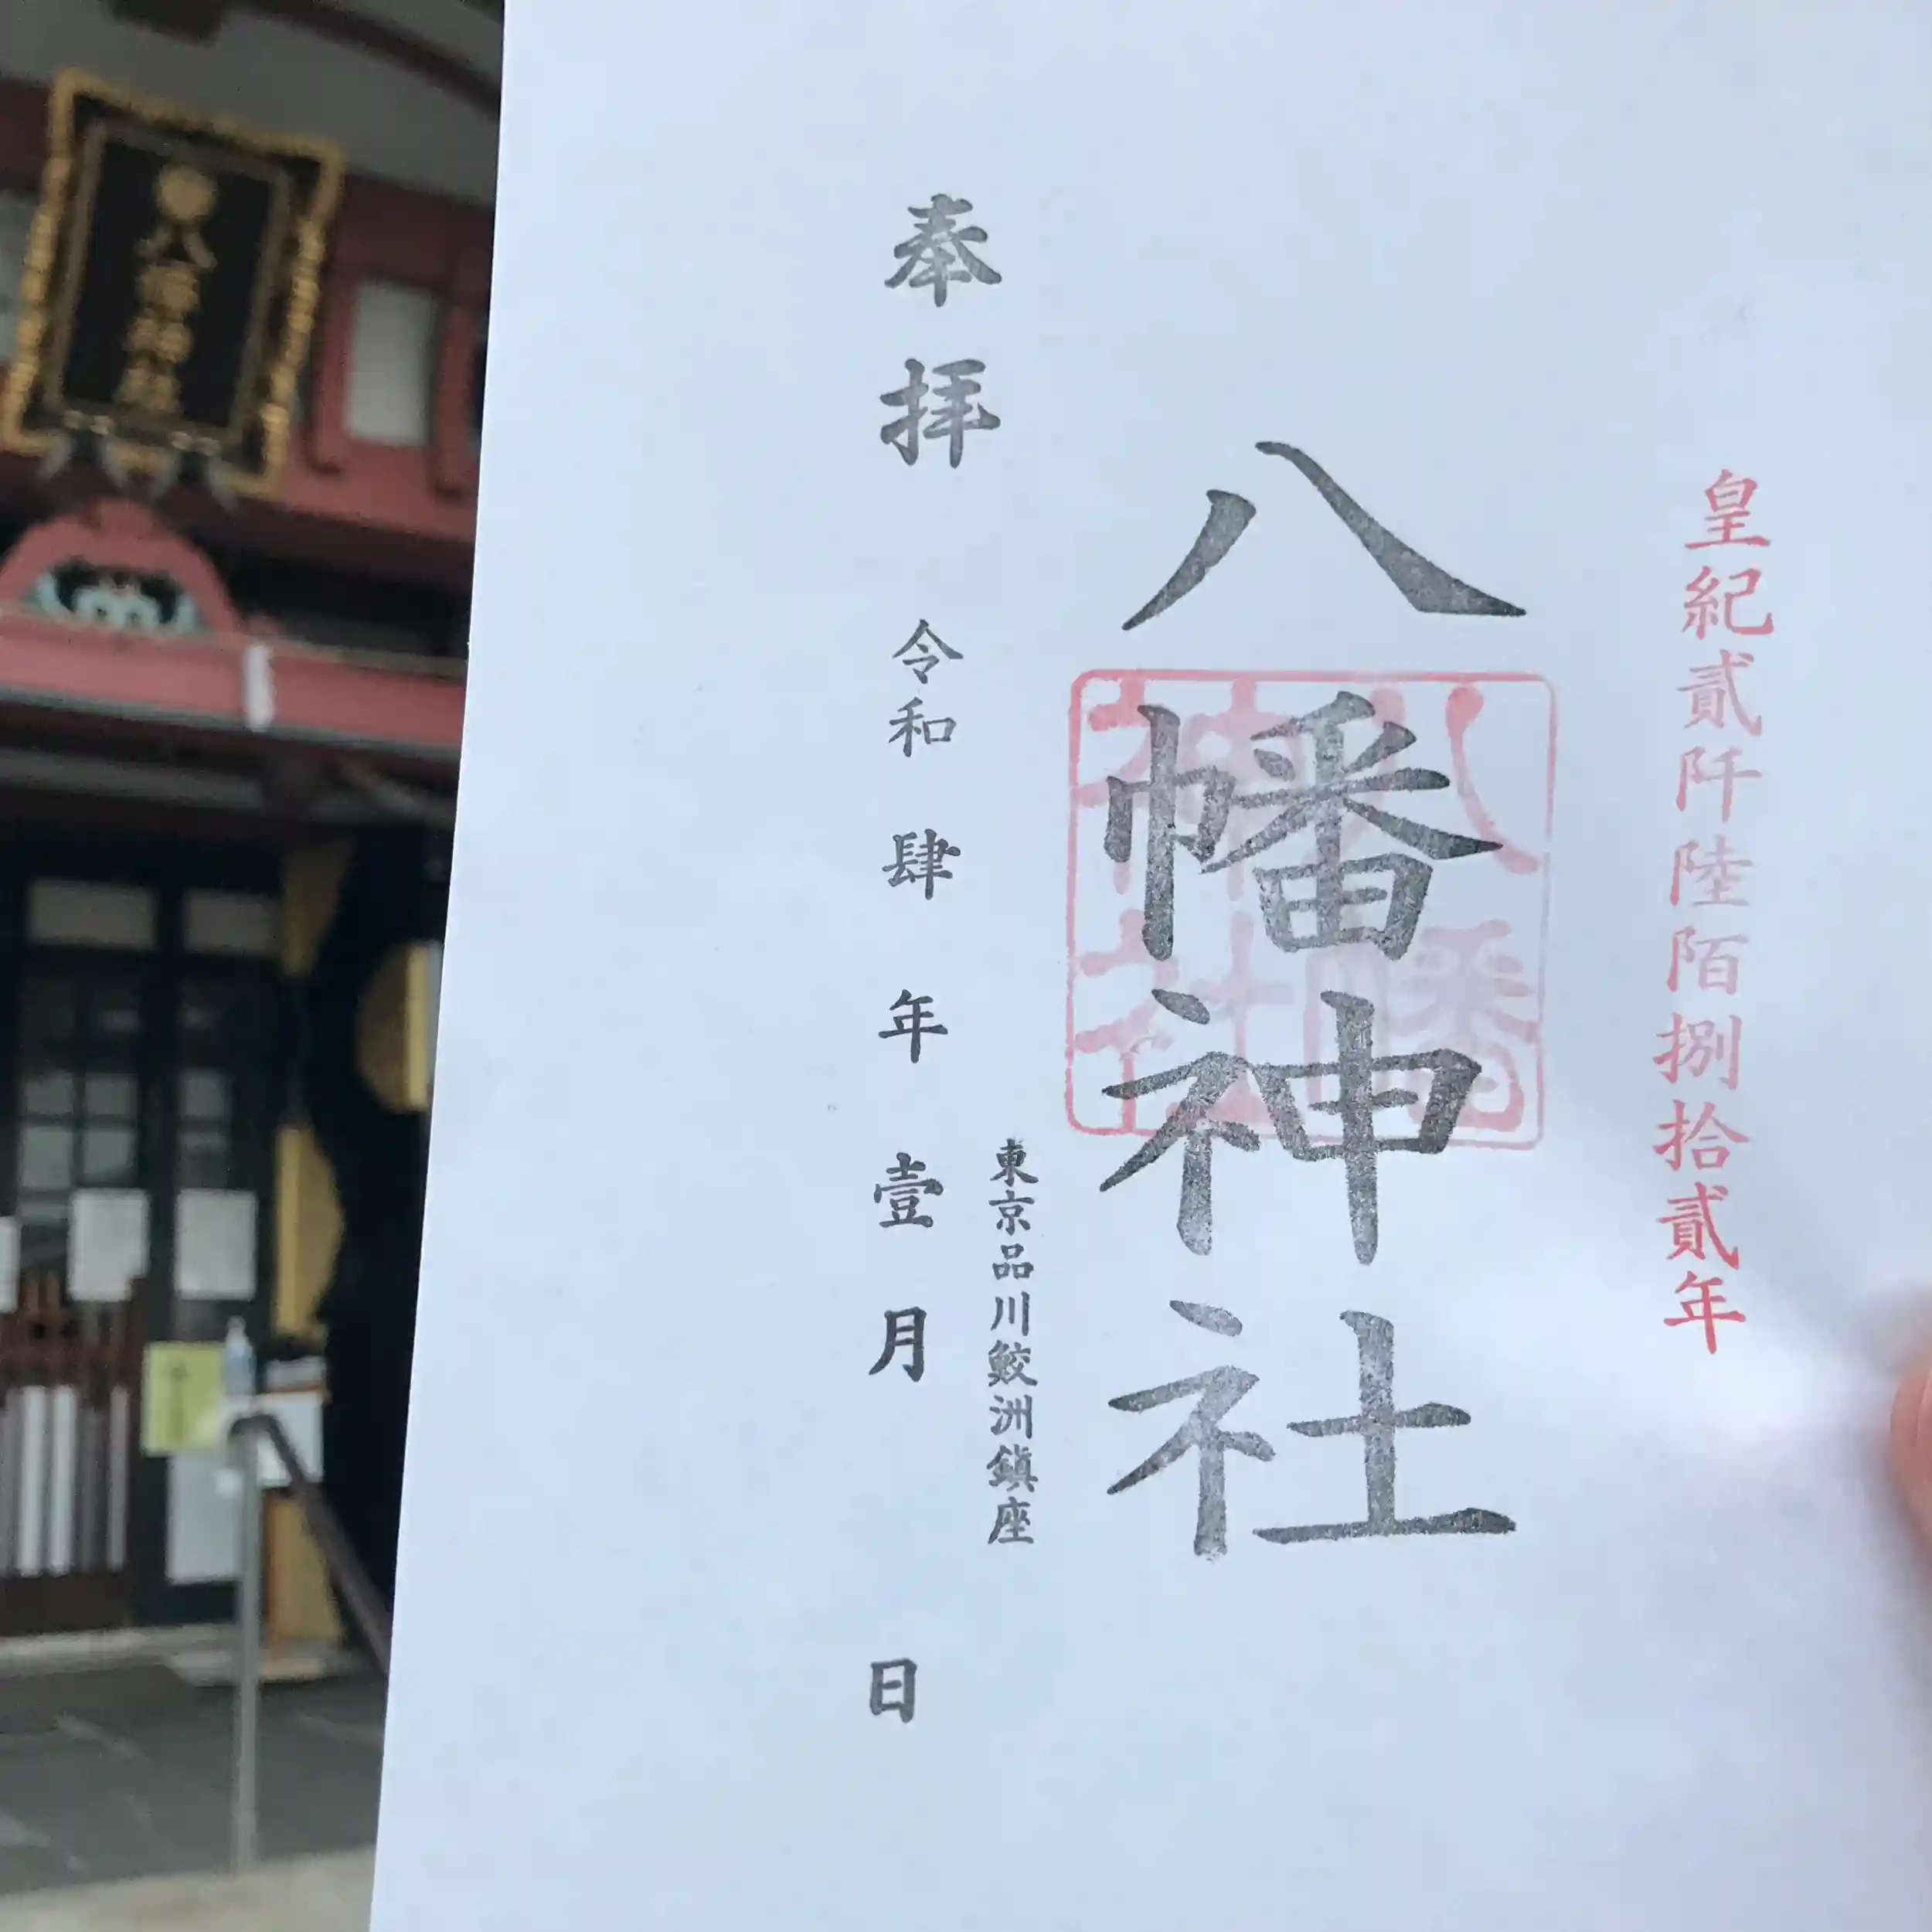 皇紀貳阡陸陌捌拾貳年
八幡神社
八幡
神社
東京品川鮫洲鎮座
奉拝 令和肆年壹月 日
八幡神社